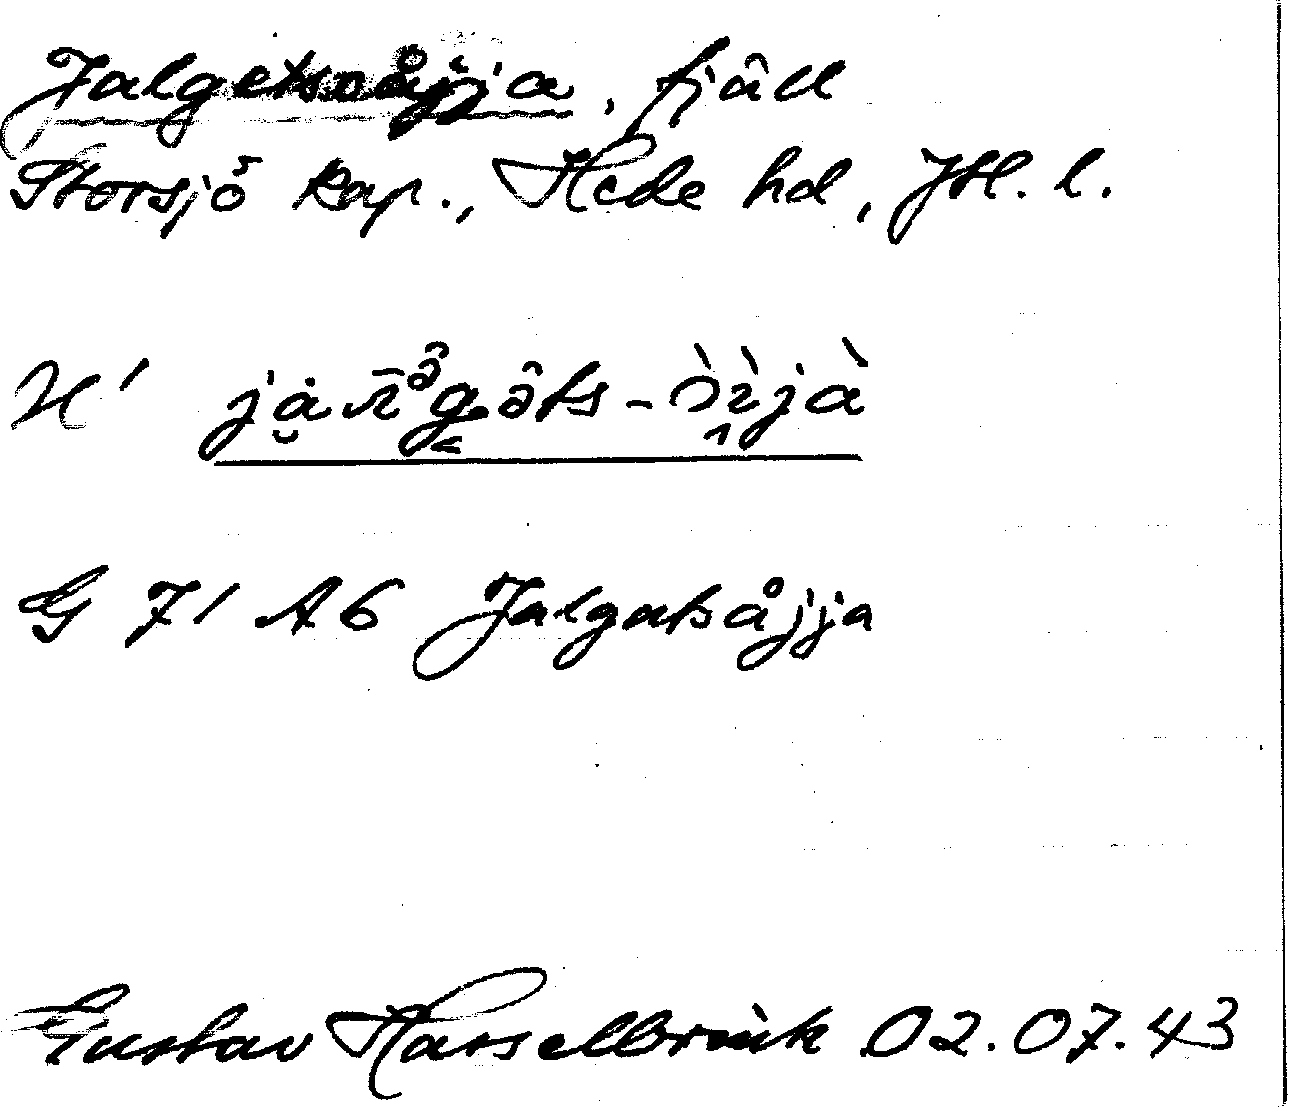 Jalgetsåjja, fjäll
Storsjö kap., Hede hd, Jtl. l.
G 71 A6 Jalgatsåjja
Gustav Hasselbrink 02.07.43